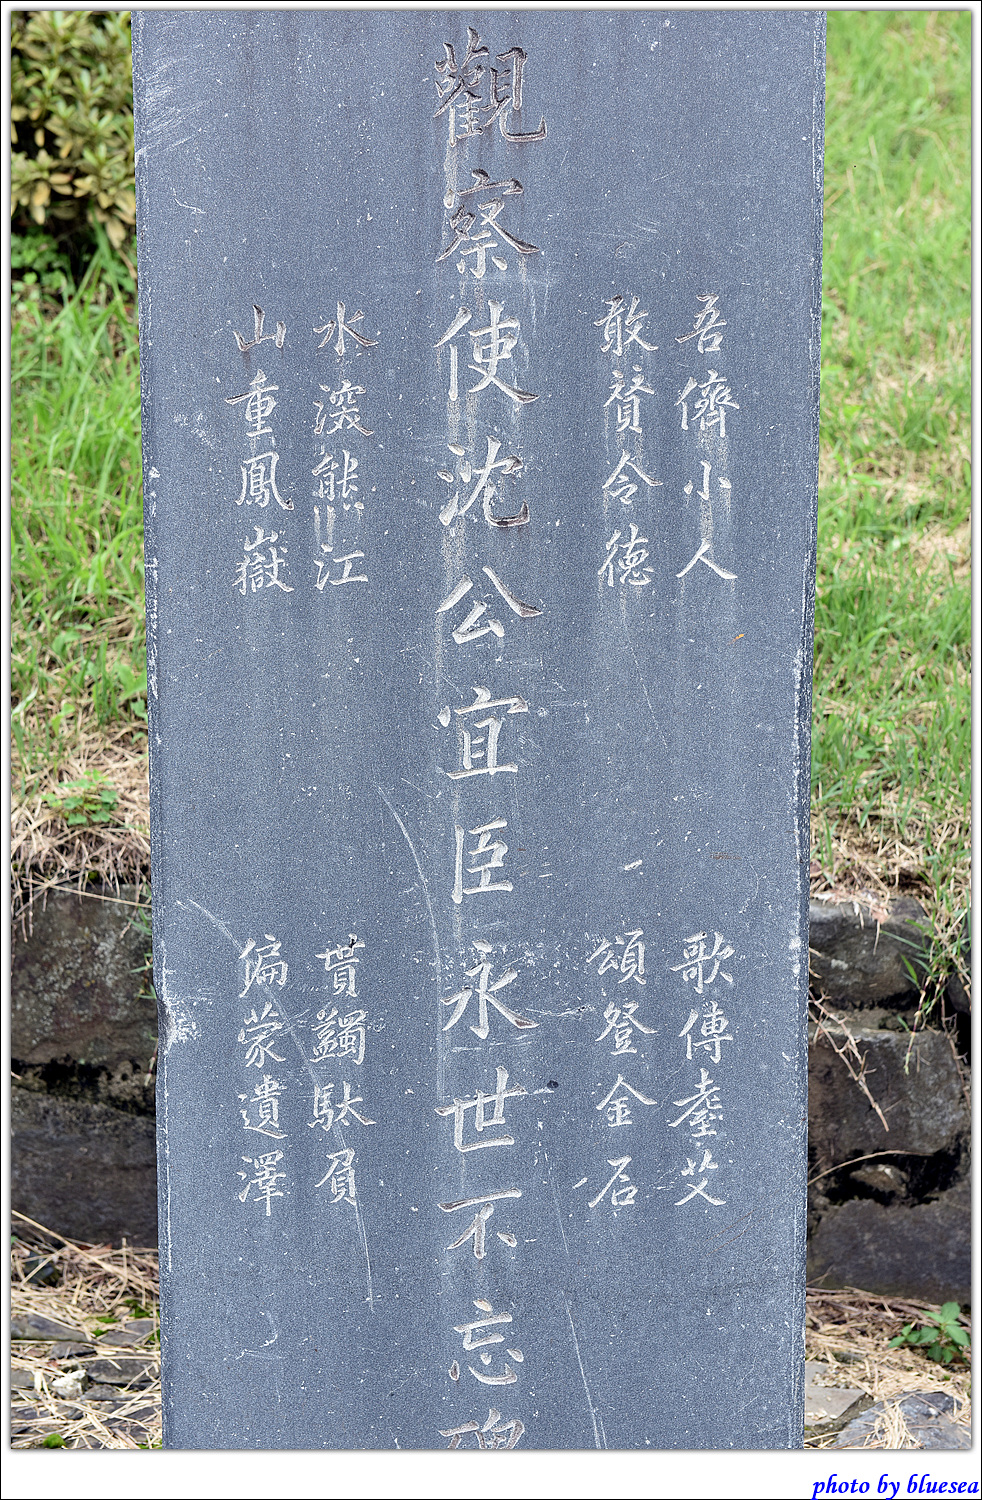 吾儕小人 歌傳耋艾
敢贊令德 頌登金石
觀察使沈公宜臣永世不忘碑
水深熊江 貰蠲馱負
山重鳳嶽 偏蒙遺澤
photo by bluesea